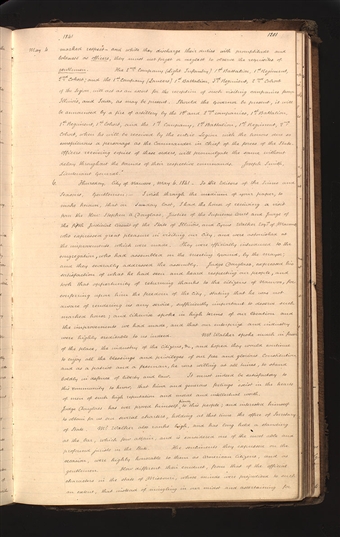 1841
1841
May 4
marked respect and while they discharge their duties with promptitude and
boldness as officers, they must not forget or neglect to observe the requisites of
gentlemen. The 1st Company (Light Infantry) 1st Battalion, 1st Regiment,
2nd Cohort; and the 1st Company (Lancers) 1st Battalion, 5th Regiment, 2nd Cohort
of the Legion, will act as an escort for the reception of such visiting companies from
Illinois, and Iowa, as may be present. Should the Governor be present, it will
be announced by a fire of artillery by the 1st and 2nd companies, 1st Battalion,
1st Regiment, 1st Cohort, and the 1st Company, 2nd Battalion, 1st Regiment, 2nd
Cohort, when he will be received by the entire Legion with the honors due so
conspicuous a personage as the Commander in Chief of the forces of the State.
Officers receiving copies of these orders, will promulgate the same without
delay throughout the bounds of their respective commands. Joseph Smith,
Lieutenant General."
6
Thursday. City of Nauvoo, May 6, 1841. To the Editors of the Times and
Seasons, Gentlemen: I wish through the medium of your paper, to
make known, that on Sunday last, I had the honor of receiving a visit
from the Hon. Stephen A. Douglass, Justice of the Supreme Court and Judge of
the fifth Judicial Circuit of the State of Illinois, and Cyrus Walker Esq. of Macomb
who expressed great pleasure in visiting our City, and were astonished at
the improvements which were made. They were officially introduced to the
congregation, who had assembled on the meeting ground, by the mayor;
and they severally addressed the assembly. Judge Douglass, expressed his
satisfaction of what he had seen and heard respecting our people, and
took that opportunity of returning thanks to the citizens of Nauvoo, for
conferring upon him the freedom of the City, stating that he was not
aware of rendering us any service, sufficiently important to deserve such
marked honor; and likewise spoke in high terms of our location and
the improvements we had made, and that our enterprize and industry
were highly creditable to us indeed. Mr Walker spoke much in favor
of the place, the industry of the citizens, &c., and hoped they would continue
to enjoy all the blessings and privileges of our free and glorious Constitution
and as a patriot and a freeman, he was willing at all times, to stand
boldly in defence of liberty and law. It must indeed be satisfactory to
this community to know, that kind and generous feelings exist in the hearts
of men of such high reputation and moral and intellectual worth.
Judge Douglass has ever proved himself friendly to this people; and interested himself
to obtain for us our several charters, holding at that time the office of Secretary
of State. Mr Walker also ranks high, and has long held a standing
at the bar, which few attain, and is considered one of the most able and
profound jurists in the State. The sentiments they expressed on the
occasion, were highly honorable to them as American Citizens, and as
gentlemen. How different their conduct, from that of the official
characters in the state of Missouri, whose minds were prejudiced to such
an extent, that instead of mingling in our midst and ascertaining for